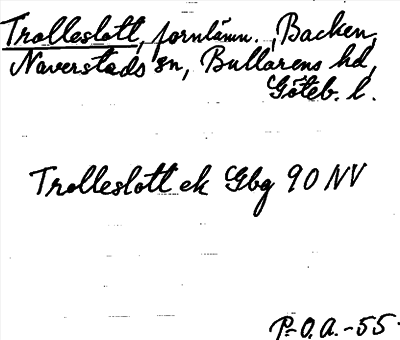 Trolleslott, fornlämn., Backen,
Naverstads sn, Bullarens hd,
Göteb. l.
Trolleslott ek Gbg 90 NV
P-O.A.-55.